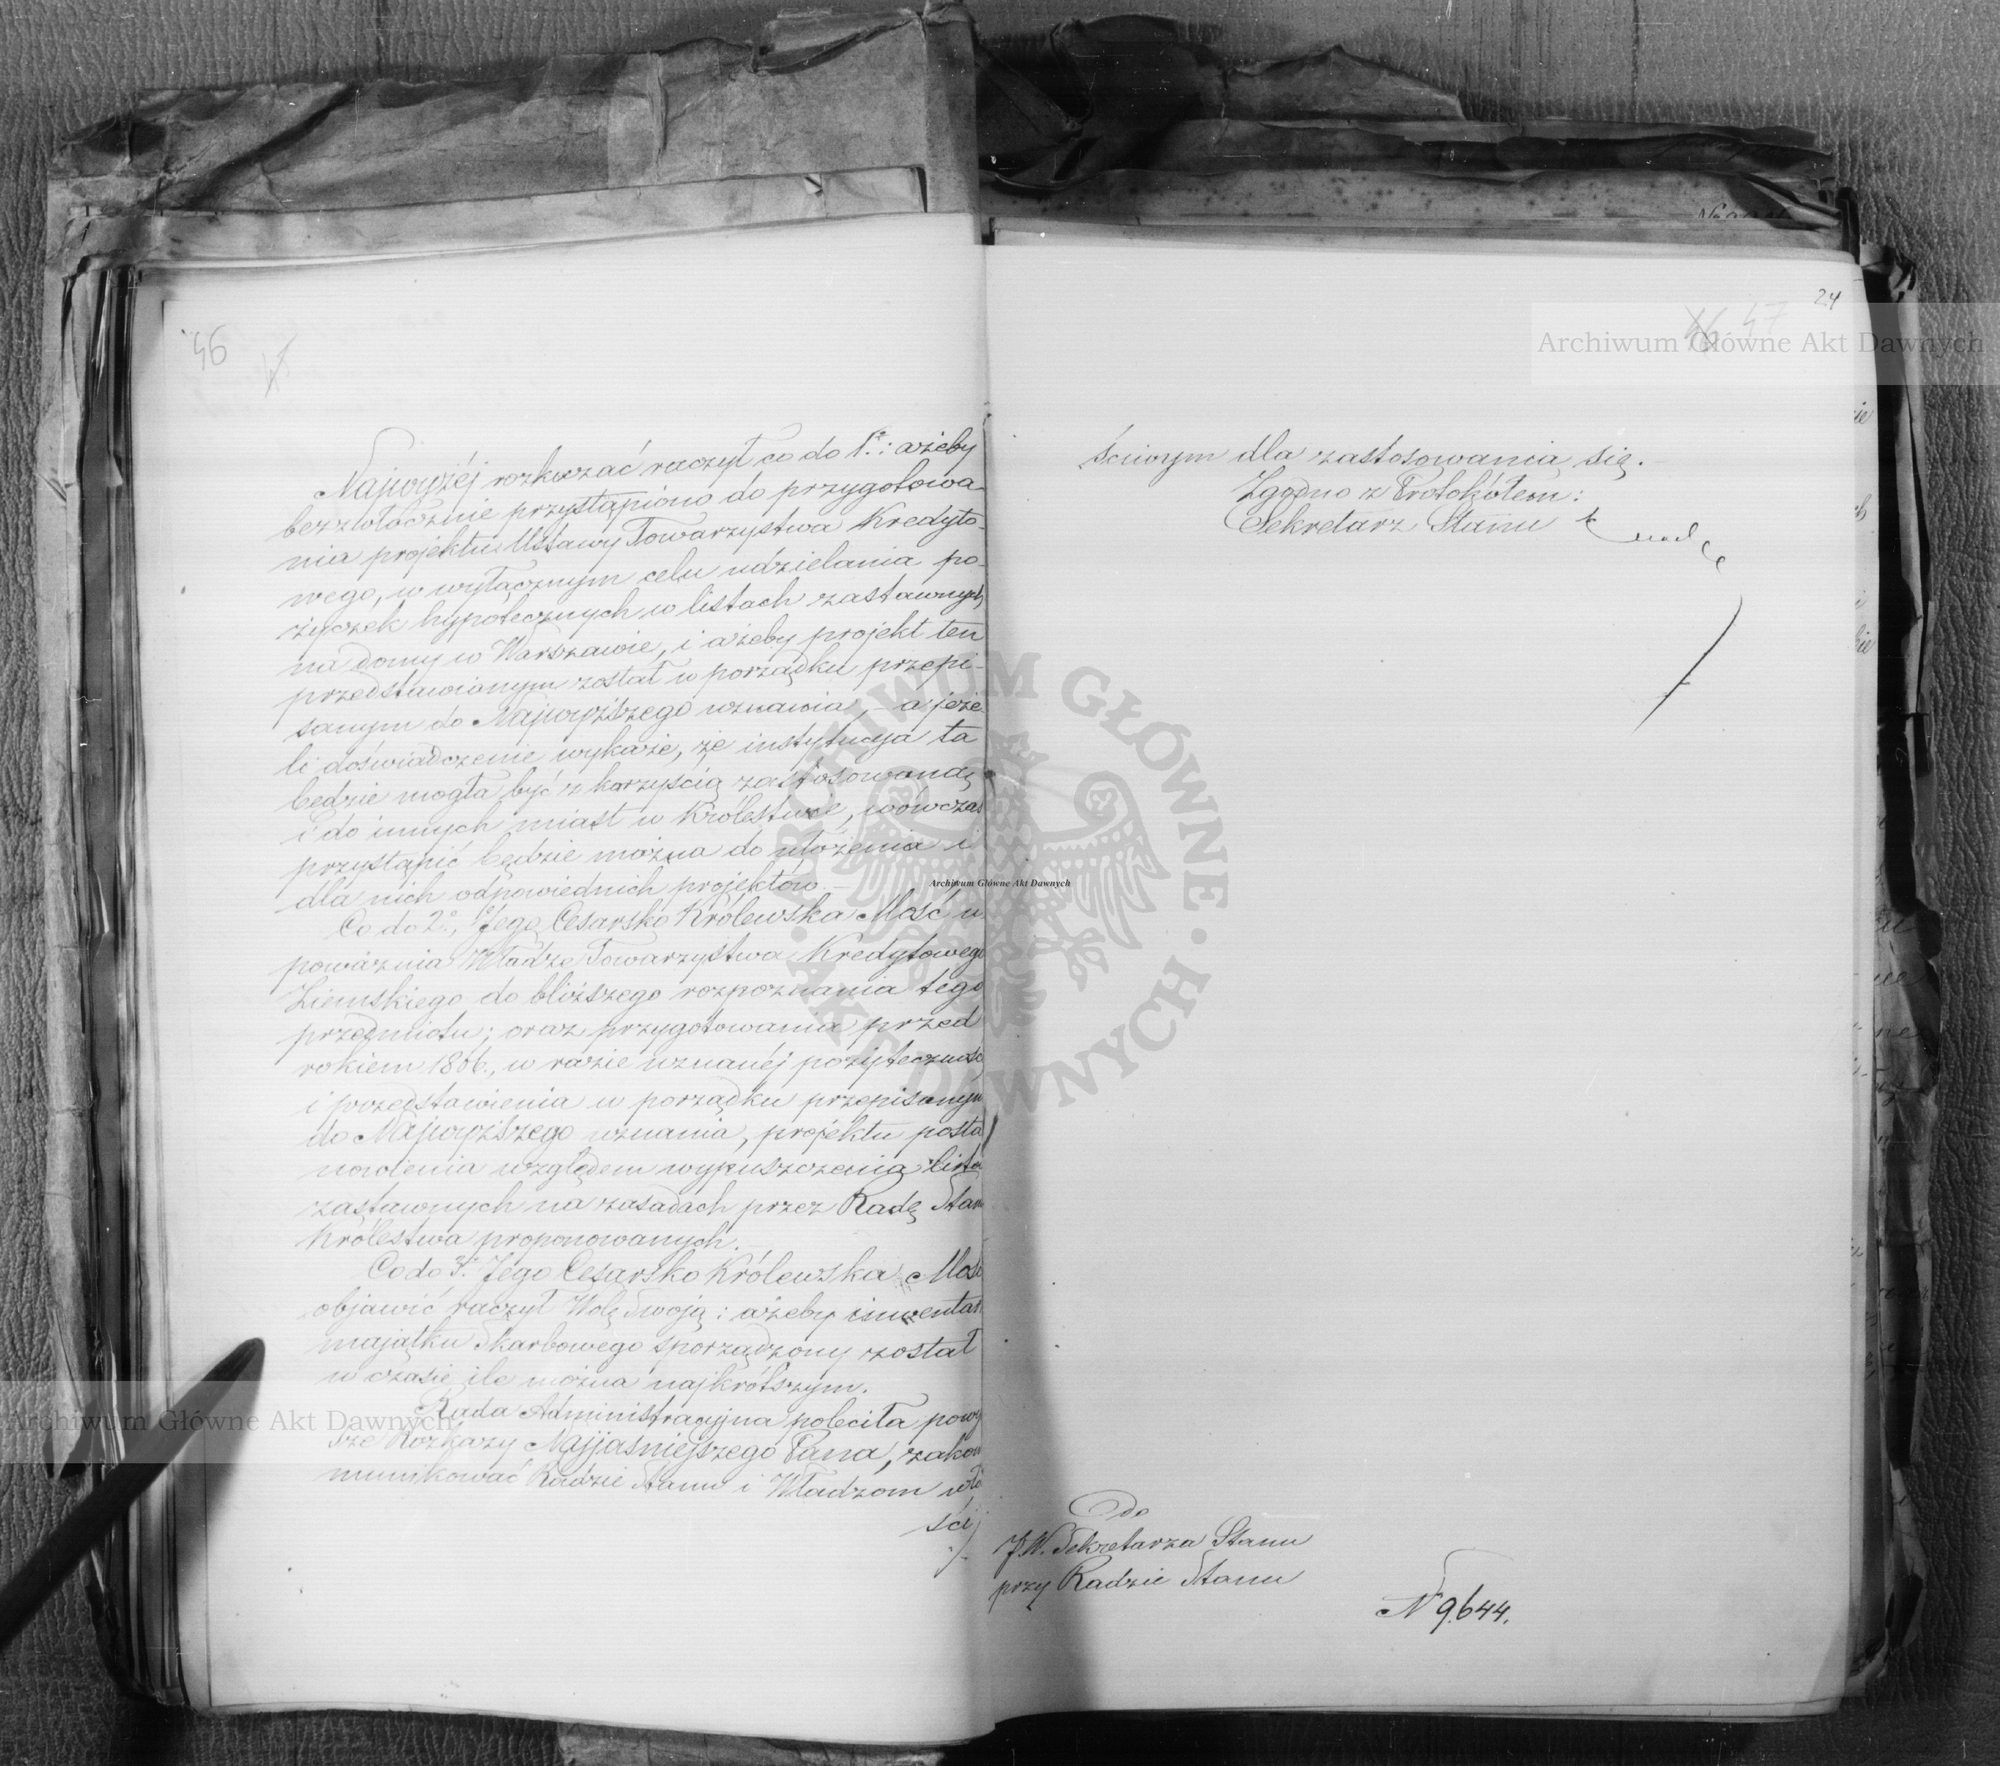 46
Najwyżéj rozkazać raczył co do 1º: ażeby
bezzwłocznie przystąpiono do przygotowa-
nia projektu Ustawy Towarzystwa Kredyto-
wego, w wyłącznym celu udzielania po-
życzek hypotecznych w listach zastawnych
na domy w Warszawie, i ażeby projekt ten
przedstawionym został w porządku przepi-
sanym do Najwyższego uznania, – a jeże-
li doświadczenie wykaże, że instytucya ta
będzie mogła być z korzyścią zastosowaną
i do innych miast w Królestwie, wówczas
przystąpić będzie można do ułożenia i
dla nich odpowiednich projektów. –
Co do 2º, Jego Cesarsko Królewska Mość u
poważnia Władze Towarzystwa Kredytowego
Ziemskiego do bliższego rozpoznania tego
przedmiotu; oraz przygotowania przed
rokiem 1866., w razie uznanéj pożyteczności
i przedstawienia w porządku przepisanym
do Najwyższego uznania, projektu posta
nowienia względem wypuszczenia listów
zastawnych na zasadach przez Radę Stanu
Królestwa proponowanych.
Co do 3º Jego Cesarsko Królewska Mość
objawić raczył Wolę Swoją: ażeby inwentarz
majątku Skarbowego sporządzony został
w czasie ile można najkrótszym.
Rada Administracyjna poleciła powyż
sze Rozkazy Najjaśniejszego Pana, zakom
munikować Radzie Stanu i Władzom wła
ści
24
47
ściwym dla zastosowania się. –
Zgodno z Protokółem:
Sekretarz Stanu
Do
J.W. Sekretarza Stanu
przy Radzie Stanu
N 9644.
Archiwum Główne Akt Dawnych
Archiwum Główne Akt Dawnych
Archiwum Główne Akt Dawnych
ARCHIWUM GŁÓWNE · AKT DAWNYCH ·